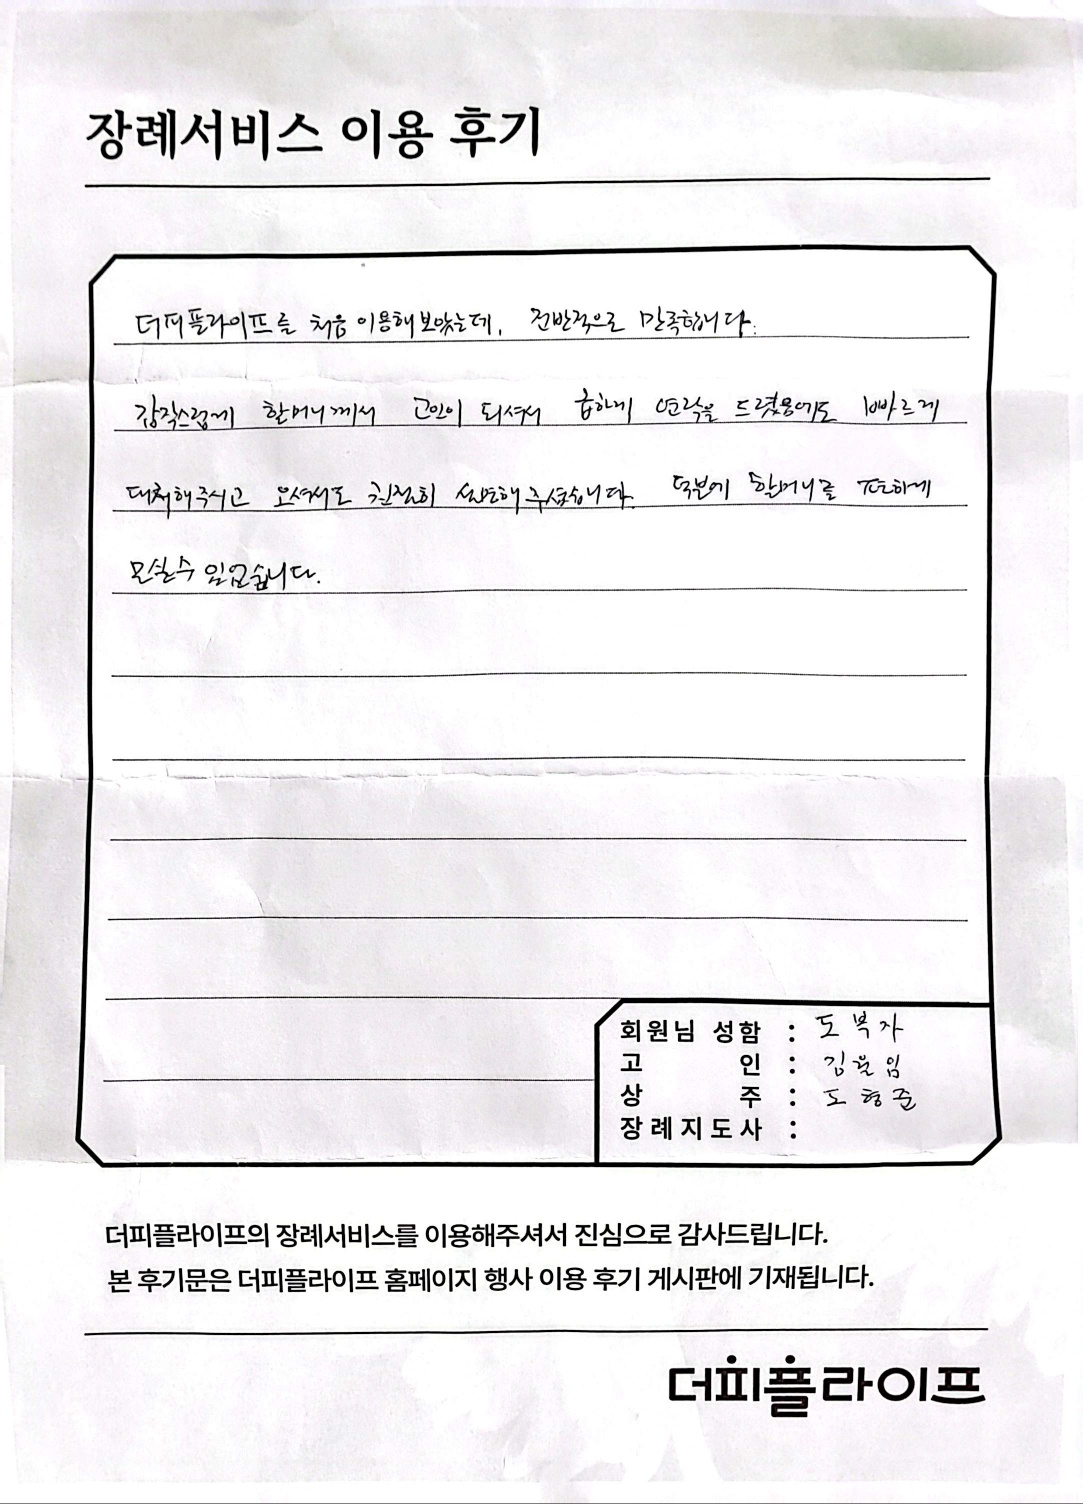 장례서비스 이용 후기
더피플라이프를 처음 이용해보았는데, 전반적으로 만족합니다.
갑작스럽게 할머니께서 고인이 되셔서 급하게 연락을 드렸음에도 빠르게
대처해주시고 오셔서도 친절히 설명해주셨습니다. 덕분에 할머니를 편하게
모실수 있었습니다.
회원님 성함 : 도복자
고 인 : 김을임
상 주 : 도형준
장례지도사 :
더피플라이프의 장례서비스를 이용해주셔서 진심으로 감사드립니다.
본 후기문은 더피플라이프 홈페이지 행사 이용 후기 게시판에 기재됩니다.
더피플라이프